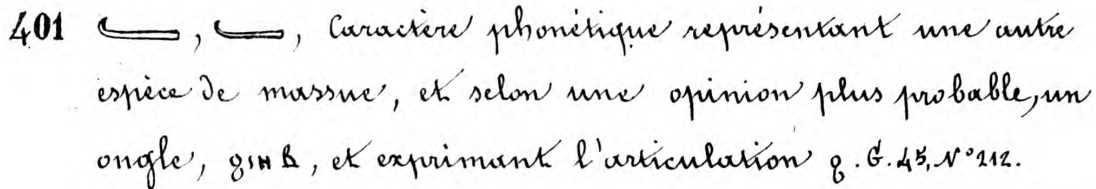 401 , , Caractère phonétique représentant une autre
espèce de massue, et selon une opinion plus probable, un
ongle, et exprimant l'articulation ϩ. G. 45, N° 212.